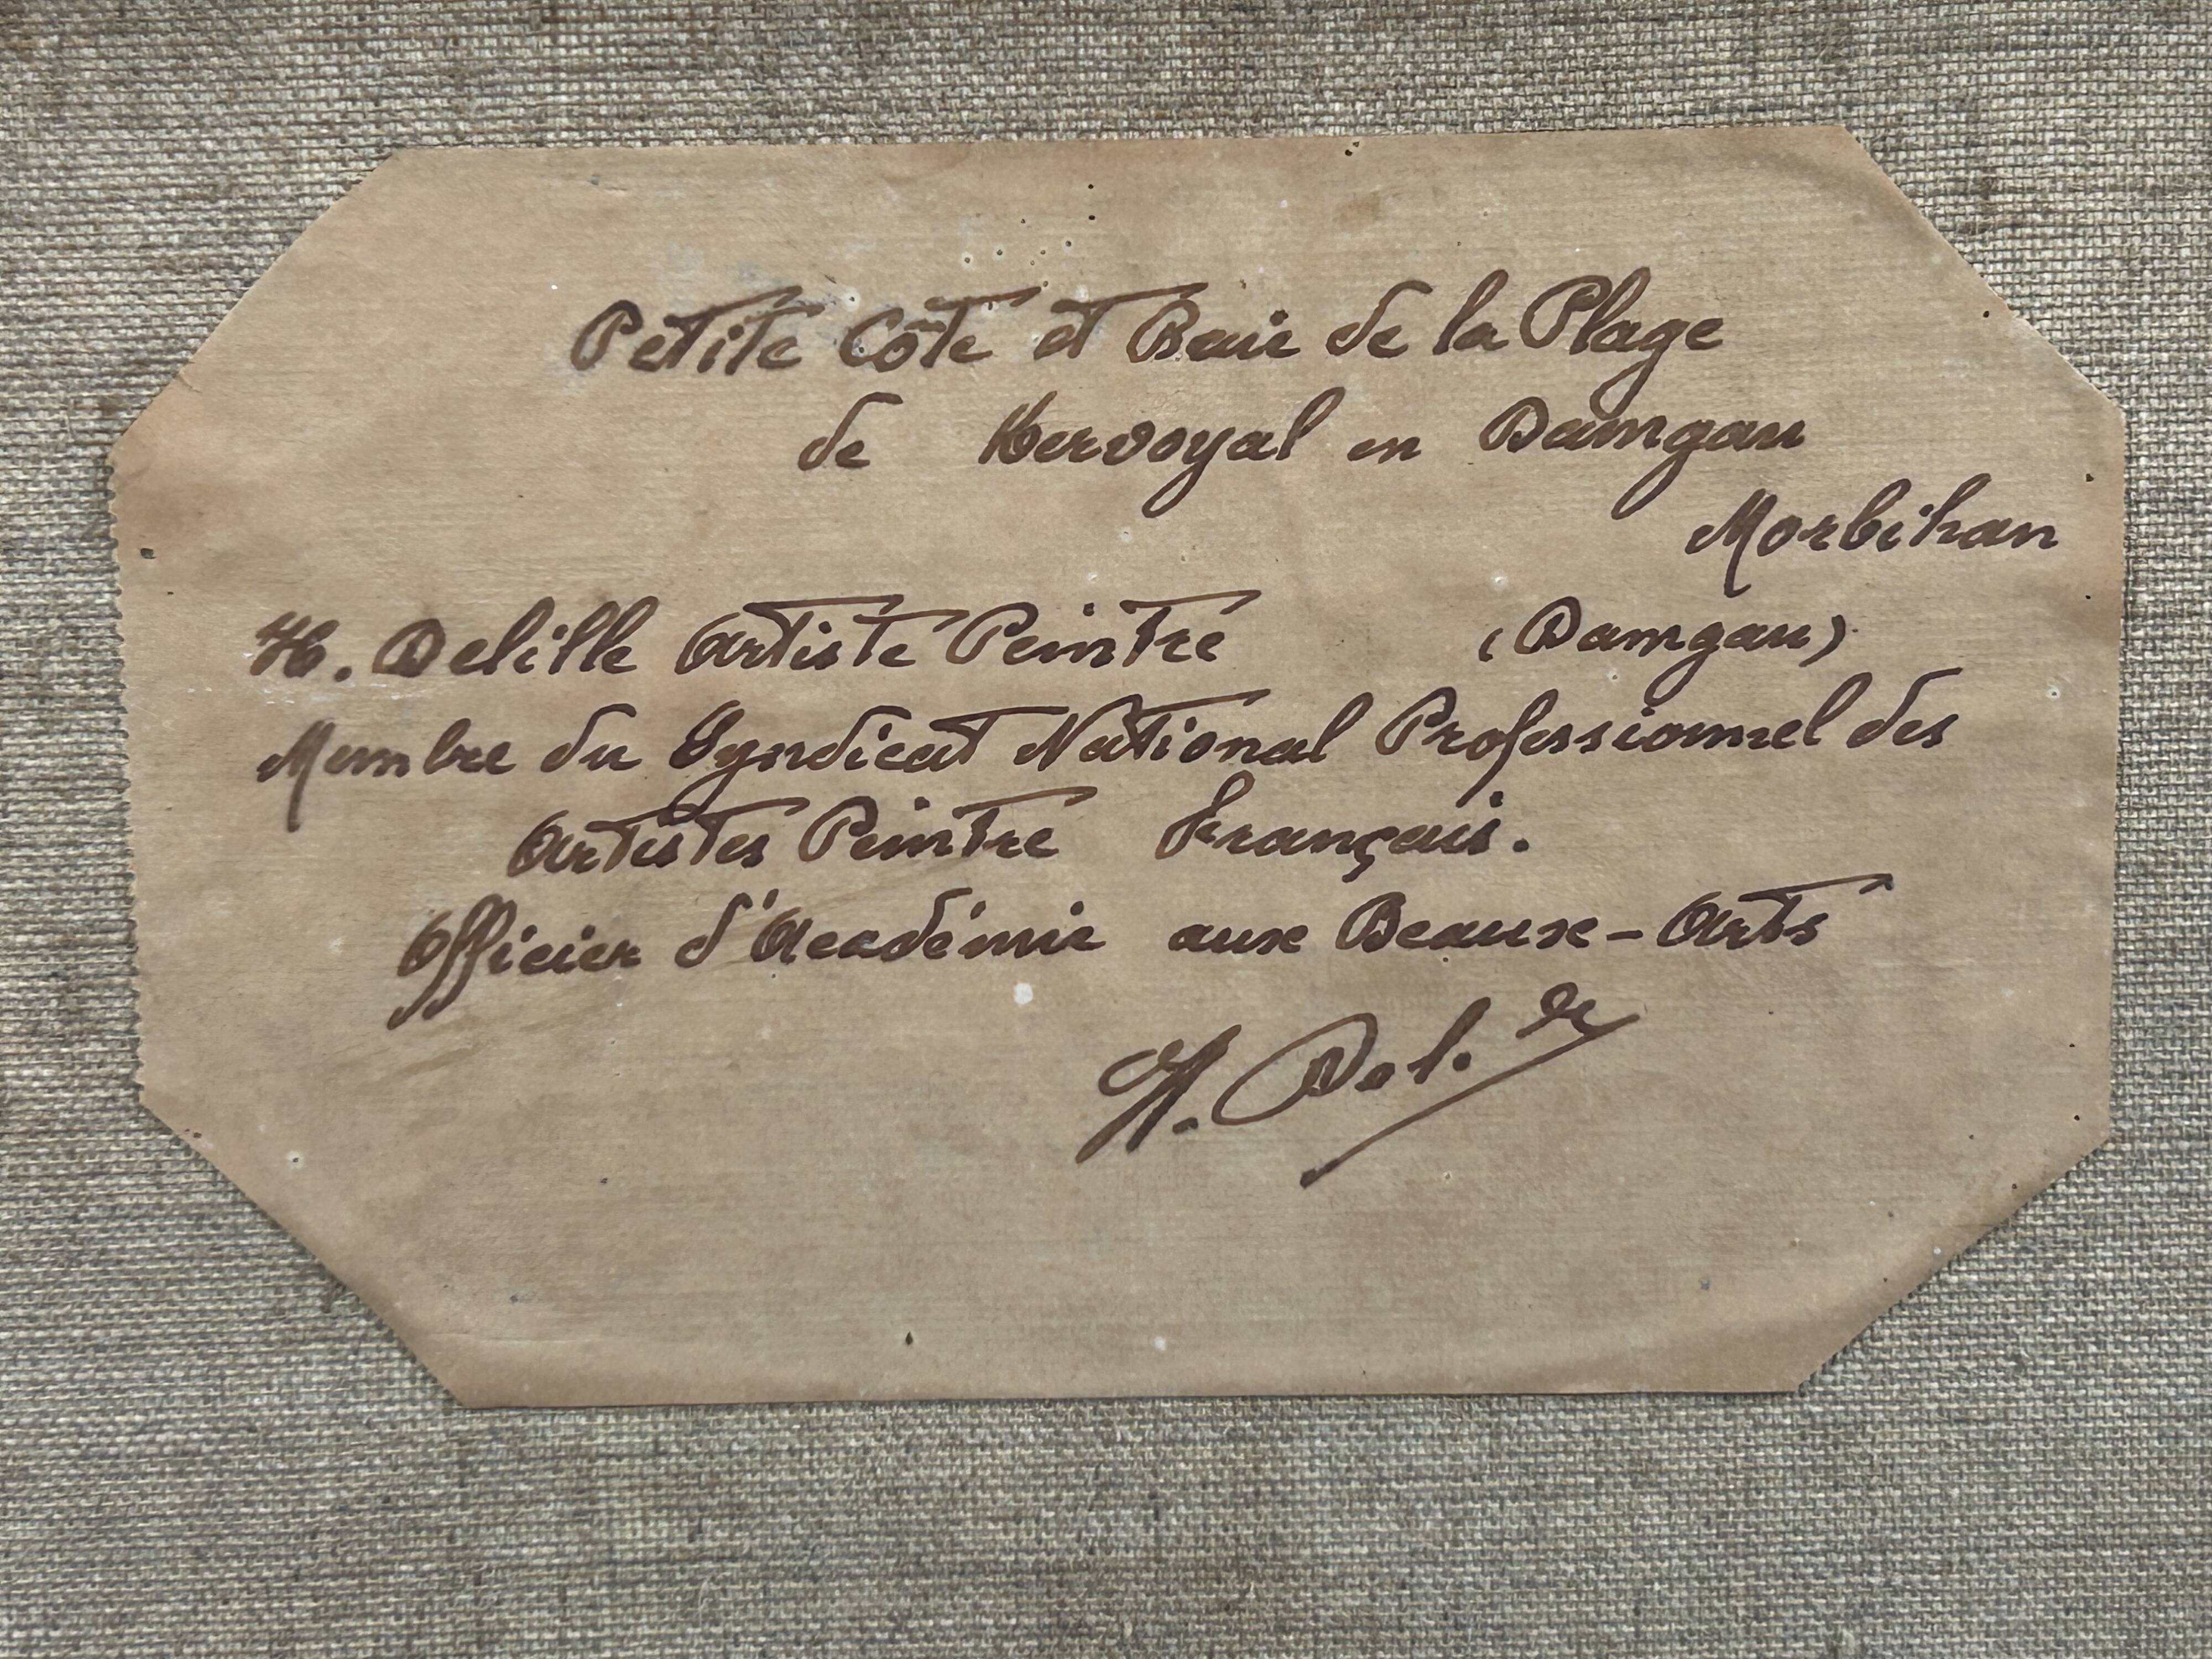 Petite Côte et Baie de la Plage
de Kervoyal en Damgan
Morbihan
H. Delille Artiste Peintre (Damgan)
Membre du Syndicat National Professionnel des
Artistes Peintre Français.
Officier d'Académie aux Beaux-Arts
H. Del.